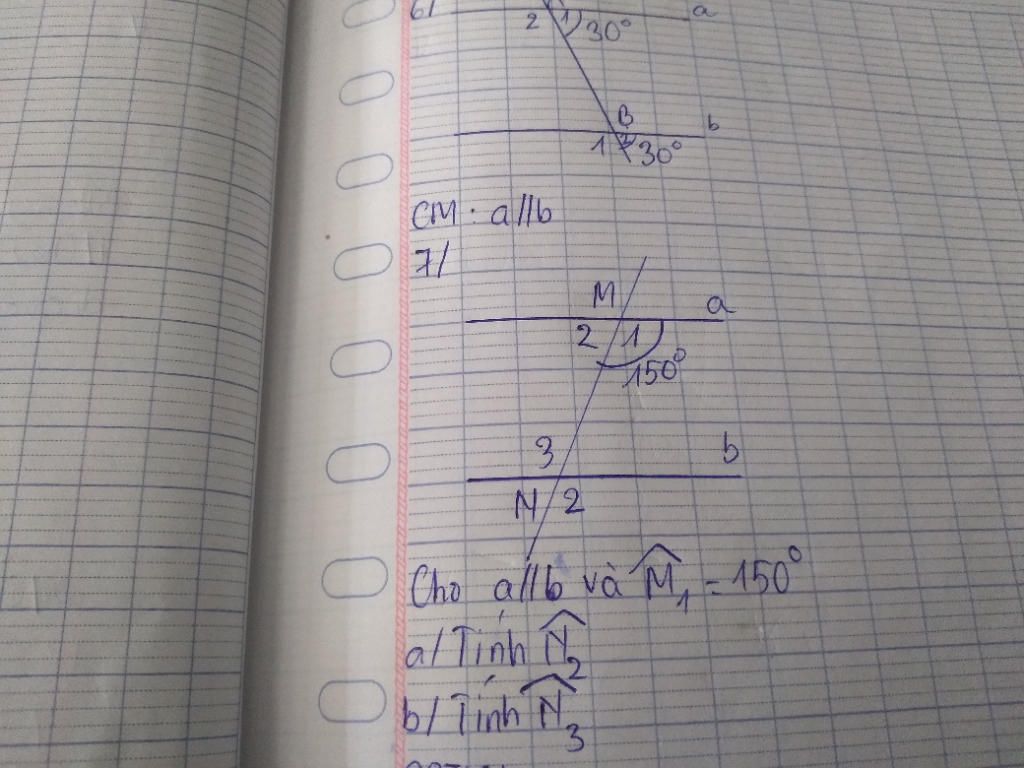 6/
a
2 1 30°
B b
1 2 30°
CM: a//b
7/
M a
2 1
150°
3 b
N 2
Cho a//b và M̂₁ = 150°
a/ Tính N̂₂
b/ Tính N̂₃